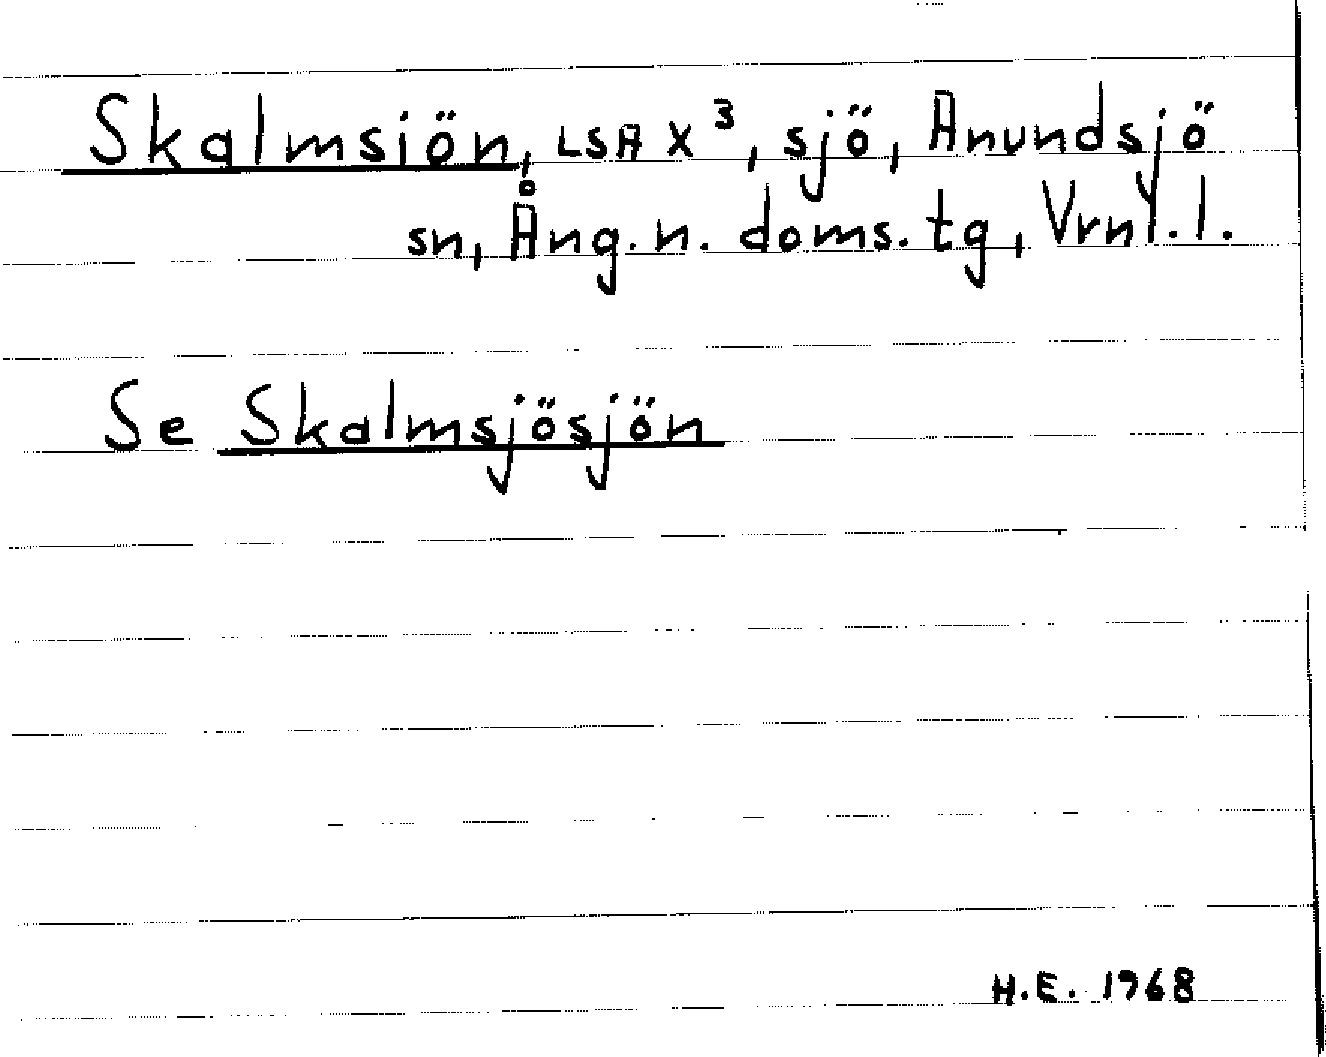 Skalmsiön, LSA X³, sjö, Anundsjö
sn, Ång. n. doms. tg, Vrnl. l.
Se Skalmsjösjön
H.E. 1968